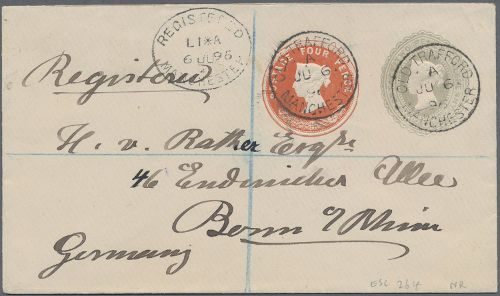 REGISTERED
L1*A
6 JU 96
MANCHESTER
FOUR PENCE
OLD TRAFFORD
A
JU 6
MANCHESTER
OLD TRAFFORD
A
JU 6
96
MANCHESTER
Registered
H. v. Rather Esqre
46 Endenicher Allee
Bonn o/Rhine
Germany
ESC 264 NR